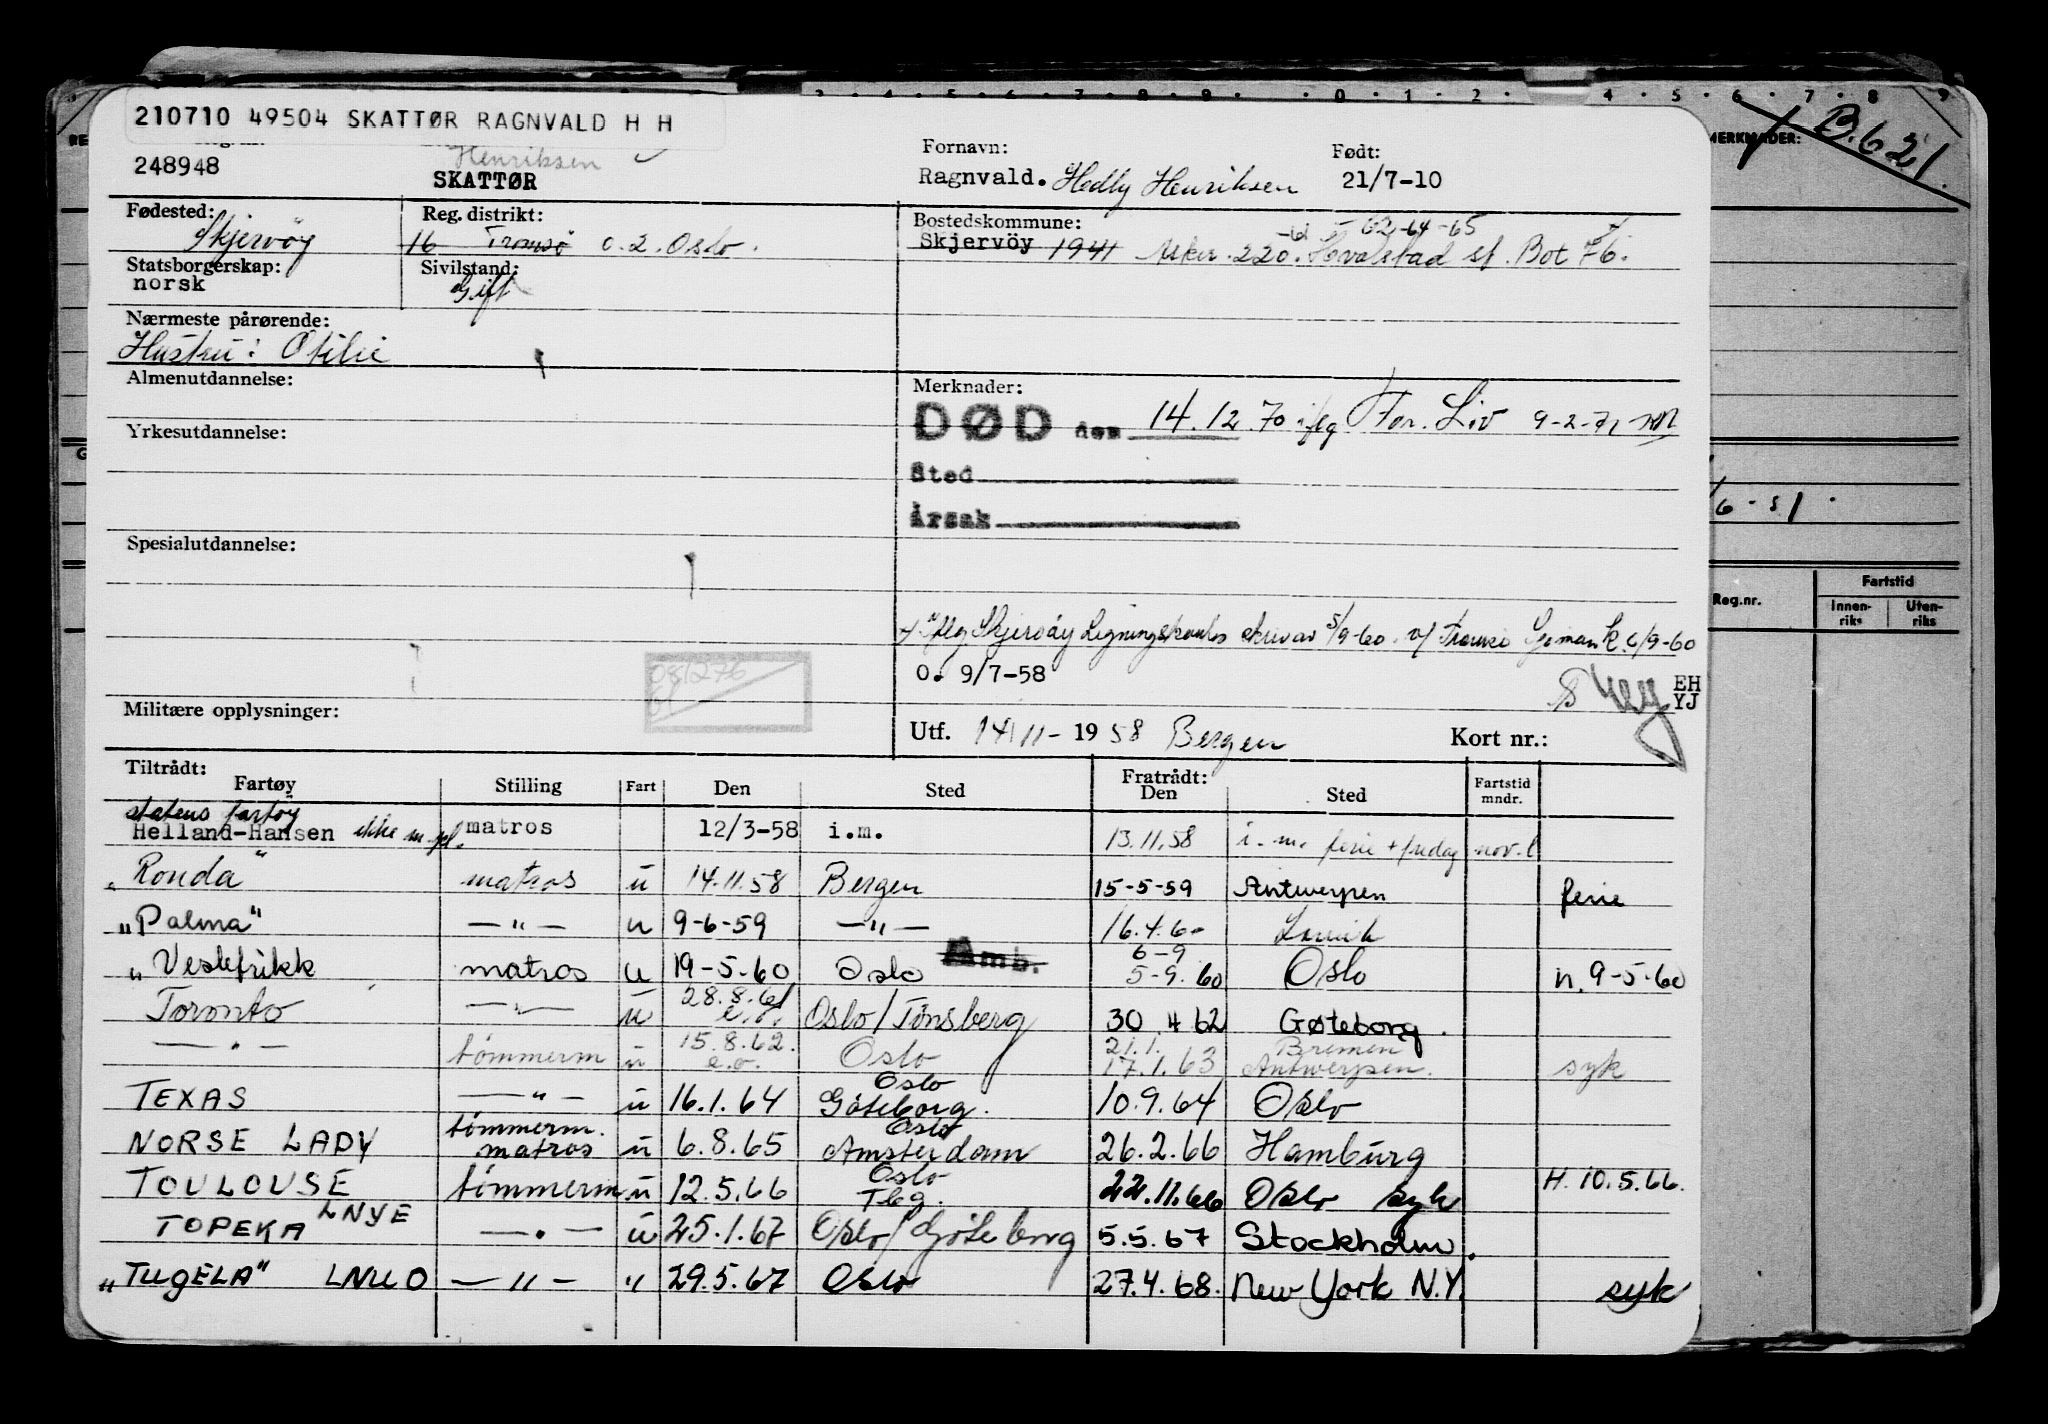 210710 49504 SKATTØR RAGNVALD H H
MERKNADER: B.621.
248948
Henriksen
SKATTØR
Fornavn:
Ragnvald. Hedly Henriksen
Født:
21/7-10
Fødested:
Skjervöy
Reg. distrikt:
16 Tromsø o.2. Oslo.
Bostedskommune:
Skjervöy 1941 Asker. 220. Hvalstad st. 62-64-65
Statsborgerskap:
norsk
Sivilstand:
Gift
Nærmeste pårørende:
Hustru: Otilie
Almenutdannelse:
Merknader:
DØD den 14.12.70 iflg For. Liv 9-2-71
Yrkesutdannelse:
Sted
Årsak
6-51
Spesialutdannelse:
Fartstid
Reg.nr. Innenriks Utenriks
iflg. Skjervöy Ligningskontors skriv av 5/9-60. v/ Tromsö 6/9-60
O. 9/7-58
EH
YJ
Militære opplysninger:
Utf. 14/11- 1958 Bergen
Kort nr.:
Tiltrådt: Fratrådt:
Fartøy Stilling Fart Den Sted Den Sted Fartstid mndr.
statens fartöy
Helland-Hansen ikke m.gj. matros 12/3-58 i.m. 13.11.58 i.m. ferie + fridag nov.
"Ronda" matros u 14.11.58 Bergen 15-5-59 Antwerpen ferie
"Palma" —"— u 9-6-59 —"— 16.4.60 Larvik
"Veslefrikk matros u 19-5-60 Oslo Amb. 6-9 5-9.60 Oslo n. 9-5-60
Toronto —"— u 28.8.61 e.o. Oslo/Tönsberg 30.4 62 Gøteborg.
—"— tömmerm u 15.8.62. e.o. Oslo 21.1. 17.1.63 Bremen Antwerpen. syk
TEXAS —"— u 16.1.64 Oslo Göteborg. 10.9.64 Oslo
NORSE LADY tömmerm. matros u 6.8.65 Oslo Amsterdam 26.2.66 Hamburg
TOULOUSE tömmerm u 12.5.66 Oslo Tbg. 22.11.66 Oslo syk H. 10.5.66.
TOPEKA LNYE —"— u 25.1.67 Oslo/Göteborg 5.5.67 Stockholm.
"TUGELA" LNUO —"— " 29.5.67 Oslo 27.4.68. New York N.Y. syk